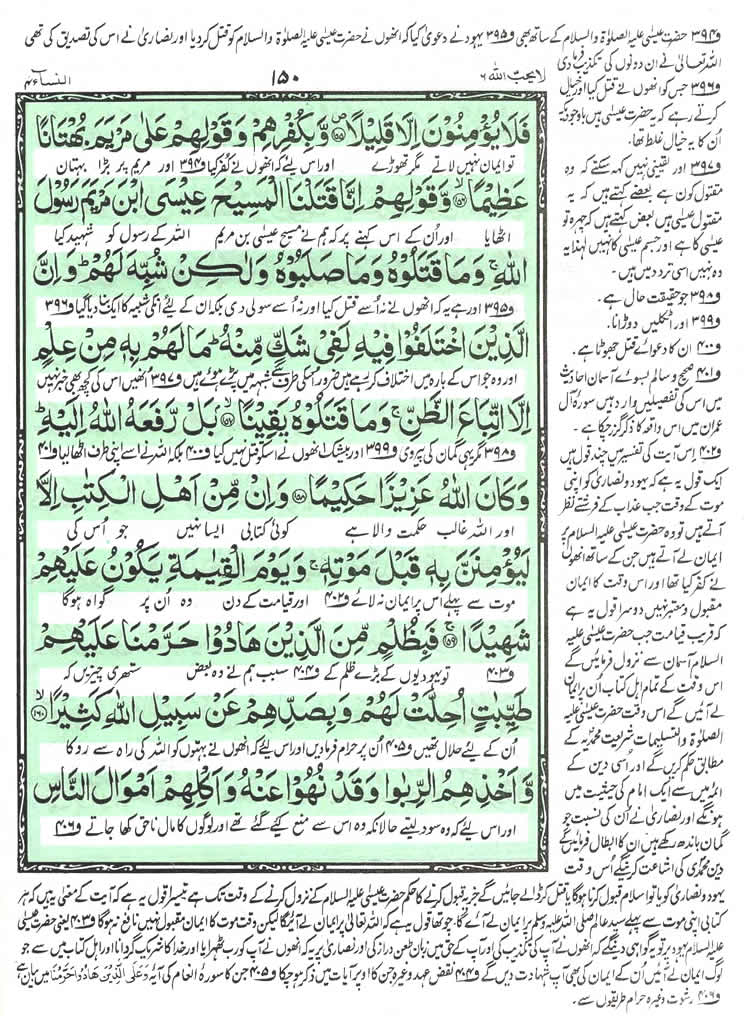 و۳۹۴ حضرت عیسٰی علیہ الصلوٰۃ والسلام کے ساتھ بھی و۳۹۵ یہود نے دعوٰی کیا کہ انھوں نے حضرت عیسٰی علیہ الصلوٰۃ والسلام کو قتل کردیا اور نصاریٰ نے اس کی تصدیق کی تھی
اللہ تعالیٰ نے ان دونوں کی تکذیب فرما دی
و۳۹۶ جس کو انھوں نے قتل کیا اور خیال
کرتے رہے کہ یہ حضرت عیسٰی ہیں باوجودیکہ
اُن کا یہ خیال غلط تھا۔
و۳۹۷ اور یقینی نہیں کہہ سکتے کہ وہ
مقتول کون ہے بعضے کہتے ہیں کہ یہ
مقتول عیسٰی ہیں بعض کہتے ہیں کہ چہرہ تو
عیسٰی کا ہے اور جسم عیسٰی کا نہیں لہٰذا یہ
وہ نہیں اسی تردد میں ہیں۔
و۳۹۸ جو حقیقت حال ہے۔
و۳۹۹ اور اٹکلیں دوڑانا۔
و۴۰۰ ان کا دعوائے قتل جھوٹا ہے۔
و۴۰۱ صحیح و سالم بسوئے آسمان احادیث
میں اس کی تفصیلیں وارد ہیں سورۂ آل
عمران میں اس واقعہ کا ذکر گزر چکا ہے۔
و۴۰۲ اس آیت کی تفسیر میں چند قول ہیں
ایک قول یہ ہے کہ یہود و نصاریٰ کو اپنی
موت کے وقت جب عذاب کے فرشتے نظر
آتے ہیں تو وہ حضرت عیسٰی علیہ السلام پر
ایمان لے آتے ہیں جن کے ساتھ انھوں
نے کفر کیا تھا اور اس وقت کا ایمان
مقبول و معتبر نہیں دوسرا قول یہ ہے
کہ قریب قیامت جب حضرت عیسٰی علیہ
السلام آسمان سے نزول فرمائیں گے
اس وقت کے تمام اہل کتاب اُن پر ایمان
لے آئیں گے اس وقت حضرت عیسٰی علیہ
الصلوٰۃ والتسلیمات شریعت محمدیہ کے
مطابق حکم کریں گے اور اسی دین کے
ائمہ میں سے ایک امام کی حیثیت میں
ہونگے اور نصاریٰ نے اُن کی نسبت جو
گمان باندھ رکھے ہیں ان کا ابطال فرمائیں گے
دین محمدی کی اشاعت کریں گے اُس وقت
لا یحب اللہ ۶
۱۵۰
النساء ۴
فَلَا یُؤْمِنُوْنَ اِلَّا قَلِیْلًا ﴿۱۵۵﴾ وَّ بِکُفْرِهِمْ وَ قَوْلِهِمْ عَلٰی مَرْیَمَ بُهْتَانًا
تو ایمان نہیں لاتے مگر تھوڑے اور اس لیئے کہ انھوں نے کفر کیا و۳۹۴ اور مریم پر بڑا بہتان
عَظِیْمًا ﴿۱۵۶﴾ وَّ قَوْلِهِمْ اِنَّا قَتَلْنَا الْمَسِیْحَ عِیْسَی ابْنَ مَرْیَمَ رَسُوْلَ
اٹھایا اور اُن کے اس کہنے پر کہ ہم نے مسیح عیسٰی بن مریم اللہ کے رسول کو شہید کیا
اللّٰهِ ۚ وَ مَا قَتَلُوْهُ وَ مَا صَلَبُوْهُ وَ لٰکِنْ شُبِّهَ لَهُمْ ؕ وَ اِنَّ
و۳۹۵ اور ہے یہ کہ انھوں نے نہ اُسے قتل کیا اور نہ اُسے سولی دی بلکہ ان کے لیئے انکی شبیہ کا ایک بنا دیا گیا و۳۹۶
الَّذِیْنَ اخْتَلَفُوْا فِیْهِ لَفِیْ شَکٍّ مِّنْهُ ؕ مَا لَهُمْ بِهٖ مِنْ عِلْمٍ
اور وہ جو اس کے بارہ میں اختلاف کر رہے ہیں ضرور اسکی طرف سے شبہہ میں پڑے ہوئے ہیں و۳۹۷ انھیں اس کی کچھ بھی خبر نہیں
اِلَّا اتِّبَاعَ الظَّنِّ ۚ وَ مَا قَتَلُوْهُ یَقِیْنًا ﴿۱۵۷﴾ بَلْ رَّفَعَهُ اللّٰهُ اِلَیْهِ ؕ
و۳۹۸ مگر یہی گمان کی پیروی و۳۹۹ اور بیشک انھوں نے اسکو قتل نہیں کیا و۴۰۰ بلکہ اللہ نے اسے اپنی طرف اٹھا لیا و۴۰۱
وَ کَانَ اللّٰهُ عَزِیْزًا حَکِیْمًا ﴿۱۵۸﴾ وَ اِنْ مِّنْ اَهْلِ الْکِتٰبِ اِلَّا
اور اللہ غالب حکمت والا ہے کوئی کتابی ایسا نہیں جو اُس کی
لَیُؤْمِنَنَّ بِهٖ قَبْلَ مَوْتِهٖ ۚ وَ یَوْمَ الْقِیٰمَةِ یَکُوْنُ عَلَیْهِمْ
موت سے پہلے اس پر ایمان نہ لائے و۴۰۲ اور قیامت کے دن وہ اُن پر گواہ ہوگا
شَهِیْدًا ﴿۱۵۹﴾ فَبِظُلْمٍ مِّنَ الَّذِیْنَ هَادُوْا حَرَّمْنَا عَلَیْهِمْ
و۴۰۳ تو یہودیوں کے بڑے ظلم کے و۴۰۴ سبب ہم نے وہ بعض ستھری چیزیں کہ
طَیِّبٰتٍ اُحِلَّتْ لَهُمْ وَ بِصَدِّهِمْ عَنْ سَبِیْلِ اللّٰهِ کَثِیْرًا ﴿۱۶۰﴾
اُن کے لیئے حلال تھیں و۴۰۵ اُن پر حرام فرما دیں اور اس لیئے کہ انھوں نے بہتوں کو اللہ کی راہ سے روکا
وَّ اَخْذِهِمُ الرِّبٰوا وَ قَدْ نُهُوْا عَنْهُ وَ اَکْلِهِمْ اَمْوَالَ النَّاسِ
اور اس لیئے کہ وہ سود لیتے حالانکہ وہ اس سے منع کیئے گئے تھے اور لوگوں کا مال ناحق کھا جاتے و۴۰۶
یہود و نصاریٰ کو یا تو اسلام قبول کرنا ہوگا یا قتل کر ڈالے جائیں گے جزیہ قبول کرنے کا حکم حضرت عیسٰی علیہ السلام کے نزول کرنے کے وقت تک ہے تیسرا قول یہ ہے کہ آیت کے معنی یہ ہیں کہ ہر
کتابی اپنی موت سے پہلے سید عالم صلی اللہ علیہ وسلم پر ایمان لے آئے گا، چوتھا قول یہ ہے کہ اللہ تعالیٰ پر ایمان لے آئیگا لیکن وقت موت کا ایمان مقبول نہیں نافع نہ ہوگا و۴۰۳ یعنی حضرت عیسٰی
علیہ السلام یہود پر تو یہ گواہی دینگے کہ انھوں نے آپ کی تکذیب کی اور آپ کے حق میں زبان طعن دراز کی اور نصاریٰ پر یہ کہ انھوں نے آپ کو رب ٹھہرایا اور خدا کا شریک گردانا اور اہل کتاب میں سے جو
لوگ ایمان لے آئیں اُن کے ایمان کی بھی آپ شہادت دیں گے و۴۰۴ نقض عہد وغیرہ جن کا اوپر آیات میں ذکر ہو چکا و۴۰۵ جن کا سورۂ انعام کی آیہ وَعَلَی الَّذِیْنَ هَادُوْا حَرَّمْنَا میں بیان ہے
و۴۰۶ رشوت وغیرہ حرام طریقوں سے۔